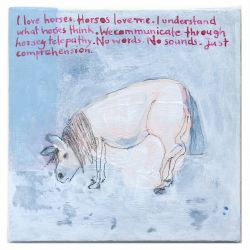 I love horses. Horses love me. I understand
what horses think. We communicate through
horsey telepathy. No words. No sounds. Just
comprehension.